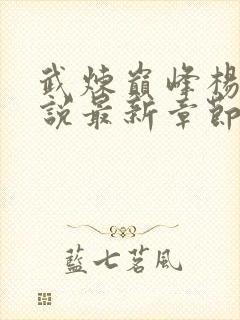 武煉巔峰楊
說最新章節
藍七茗風